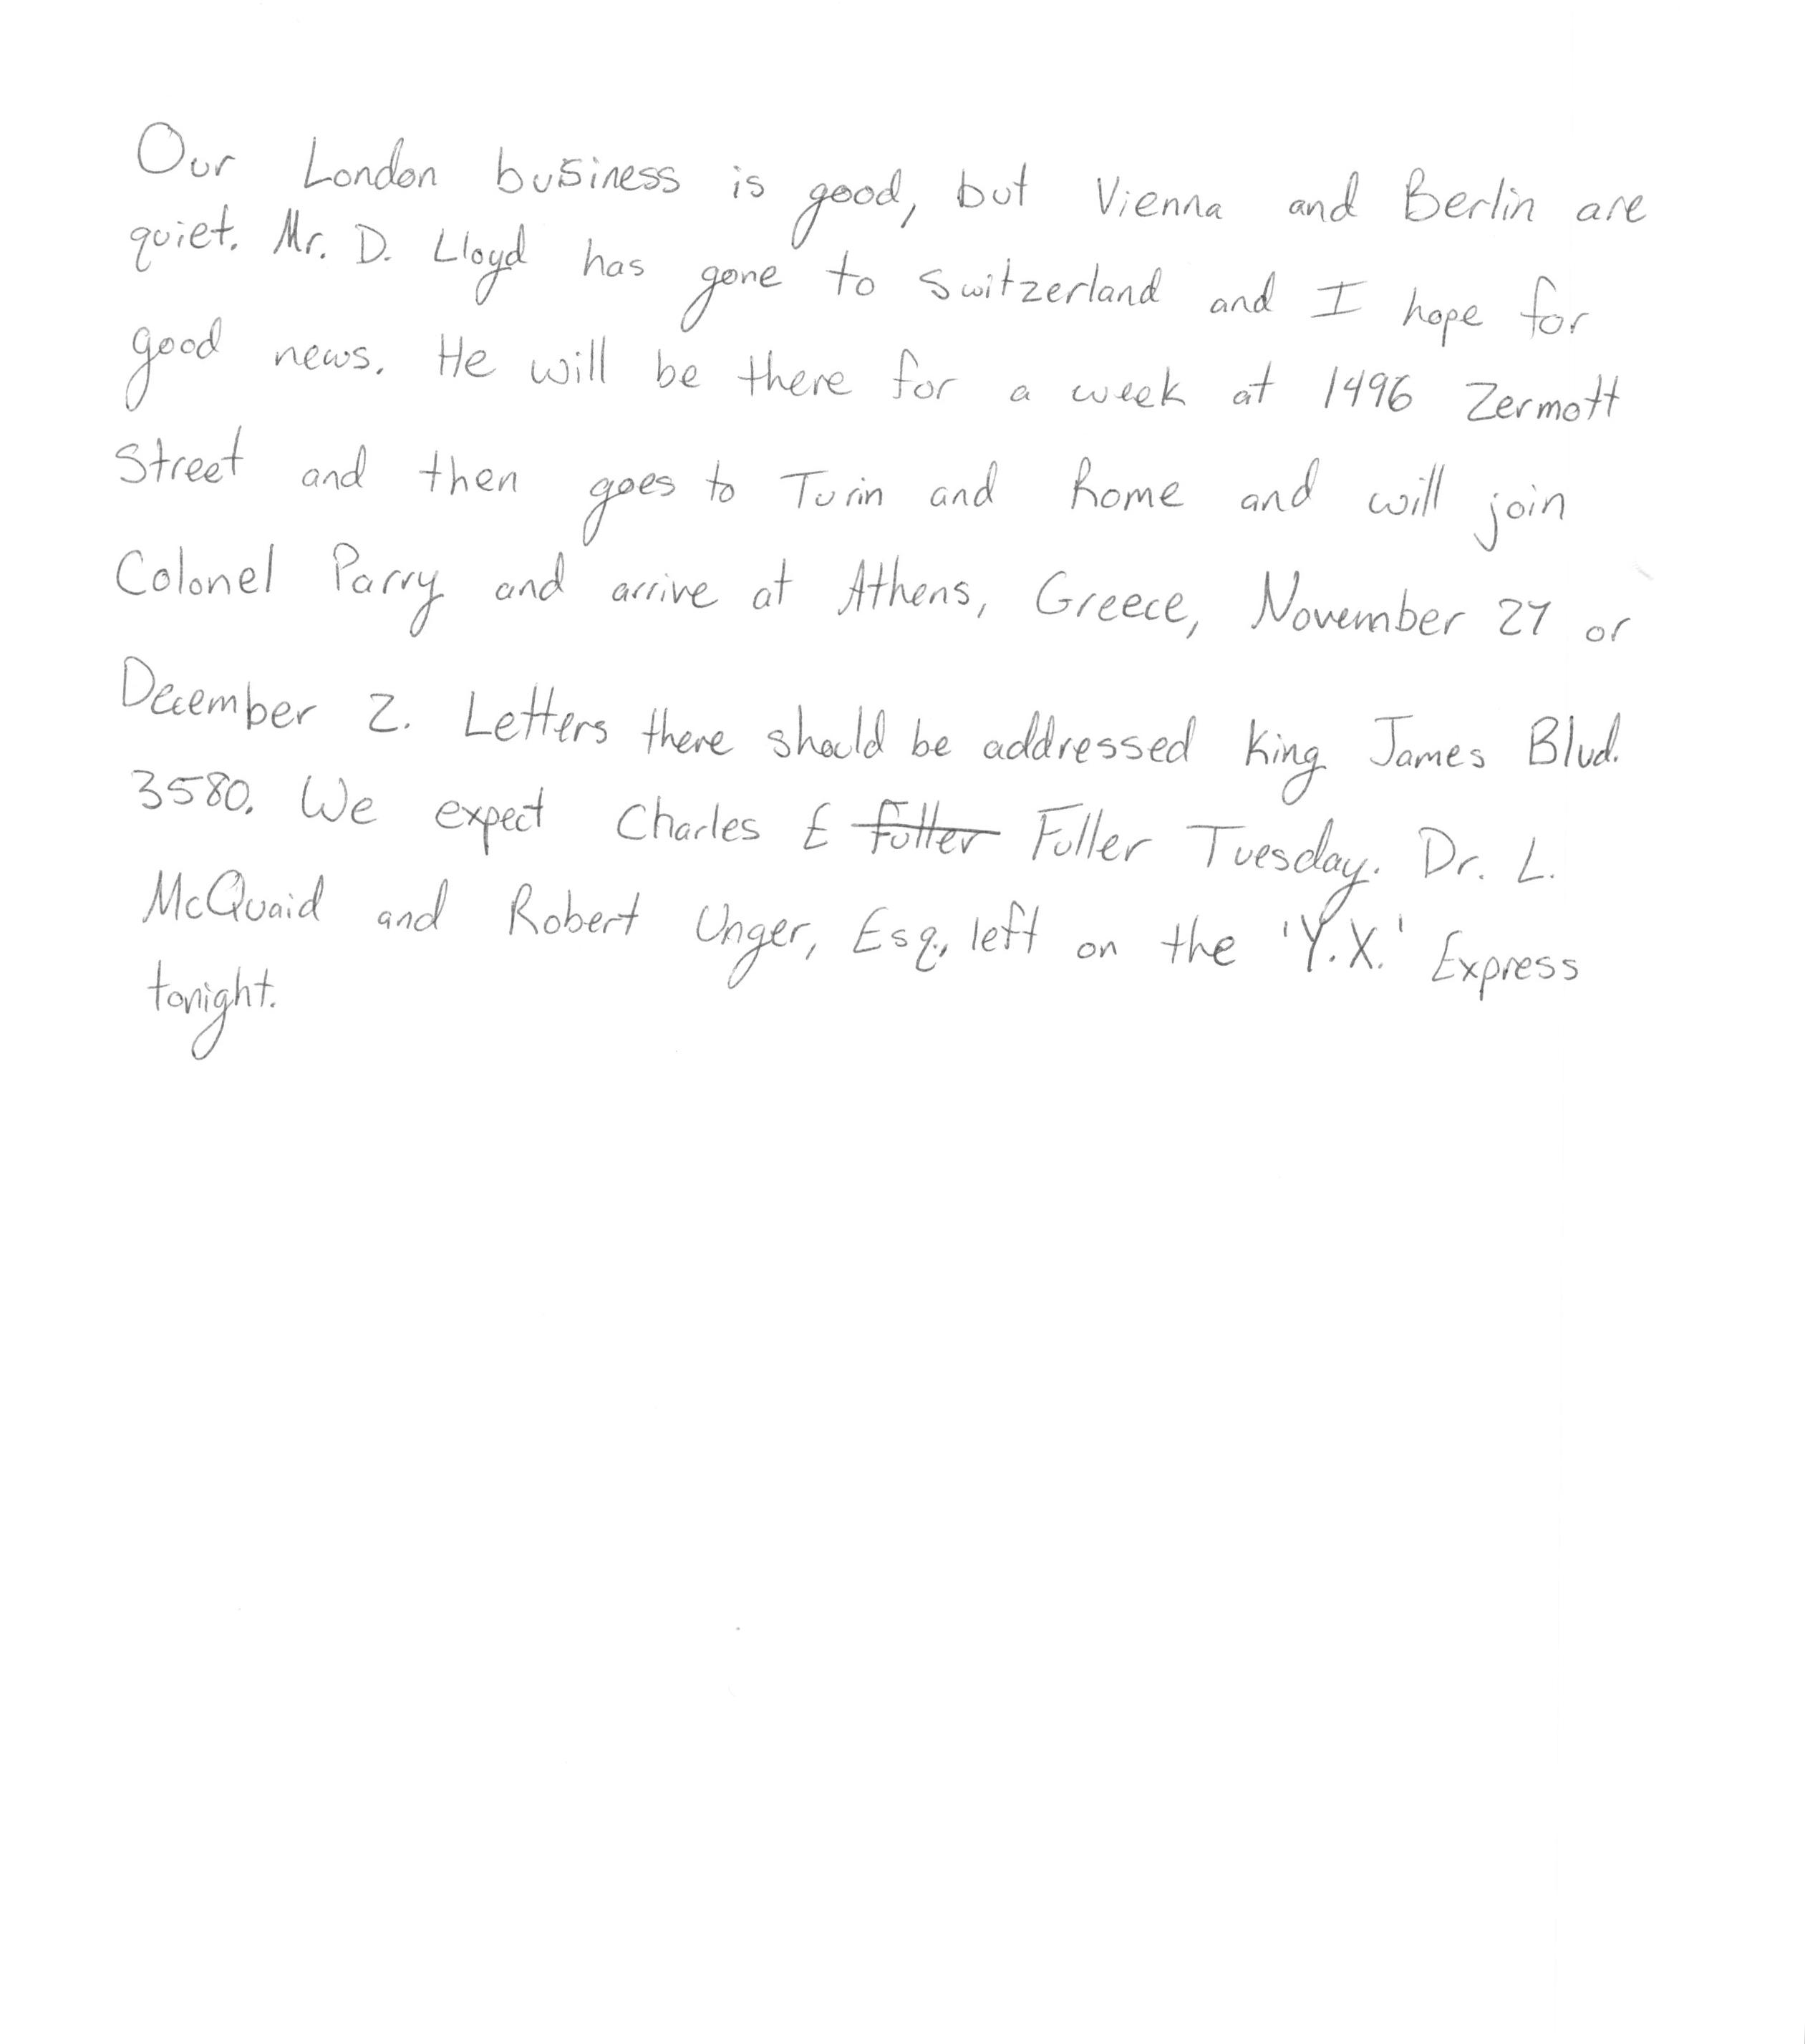 Our London business is good, but Vienna and Berlin are
quiet. Mr. D. Lloyd has gone to Switzerland and I hope for
good news. He will be there for a week at 1496 Zermott
Street and then goes to Turin and Rome and will join
Colonel Parry and arrive at Athens, Greece, November 27 or
December 2. Letters there should be addressed King James Blvd.
3580. We expect Charles E Fuller Fuller Tuesday. Dr. L.
McQuaid and Robert Unger, Esq., left on the 'Y.X.' Express
tonight.